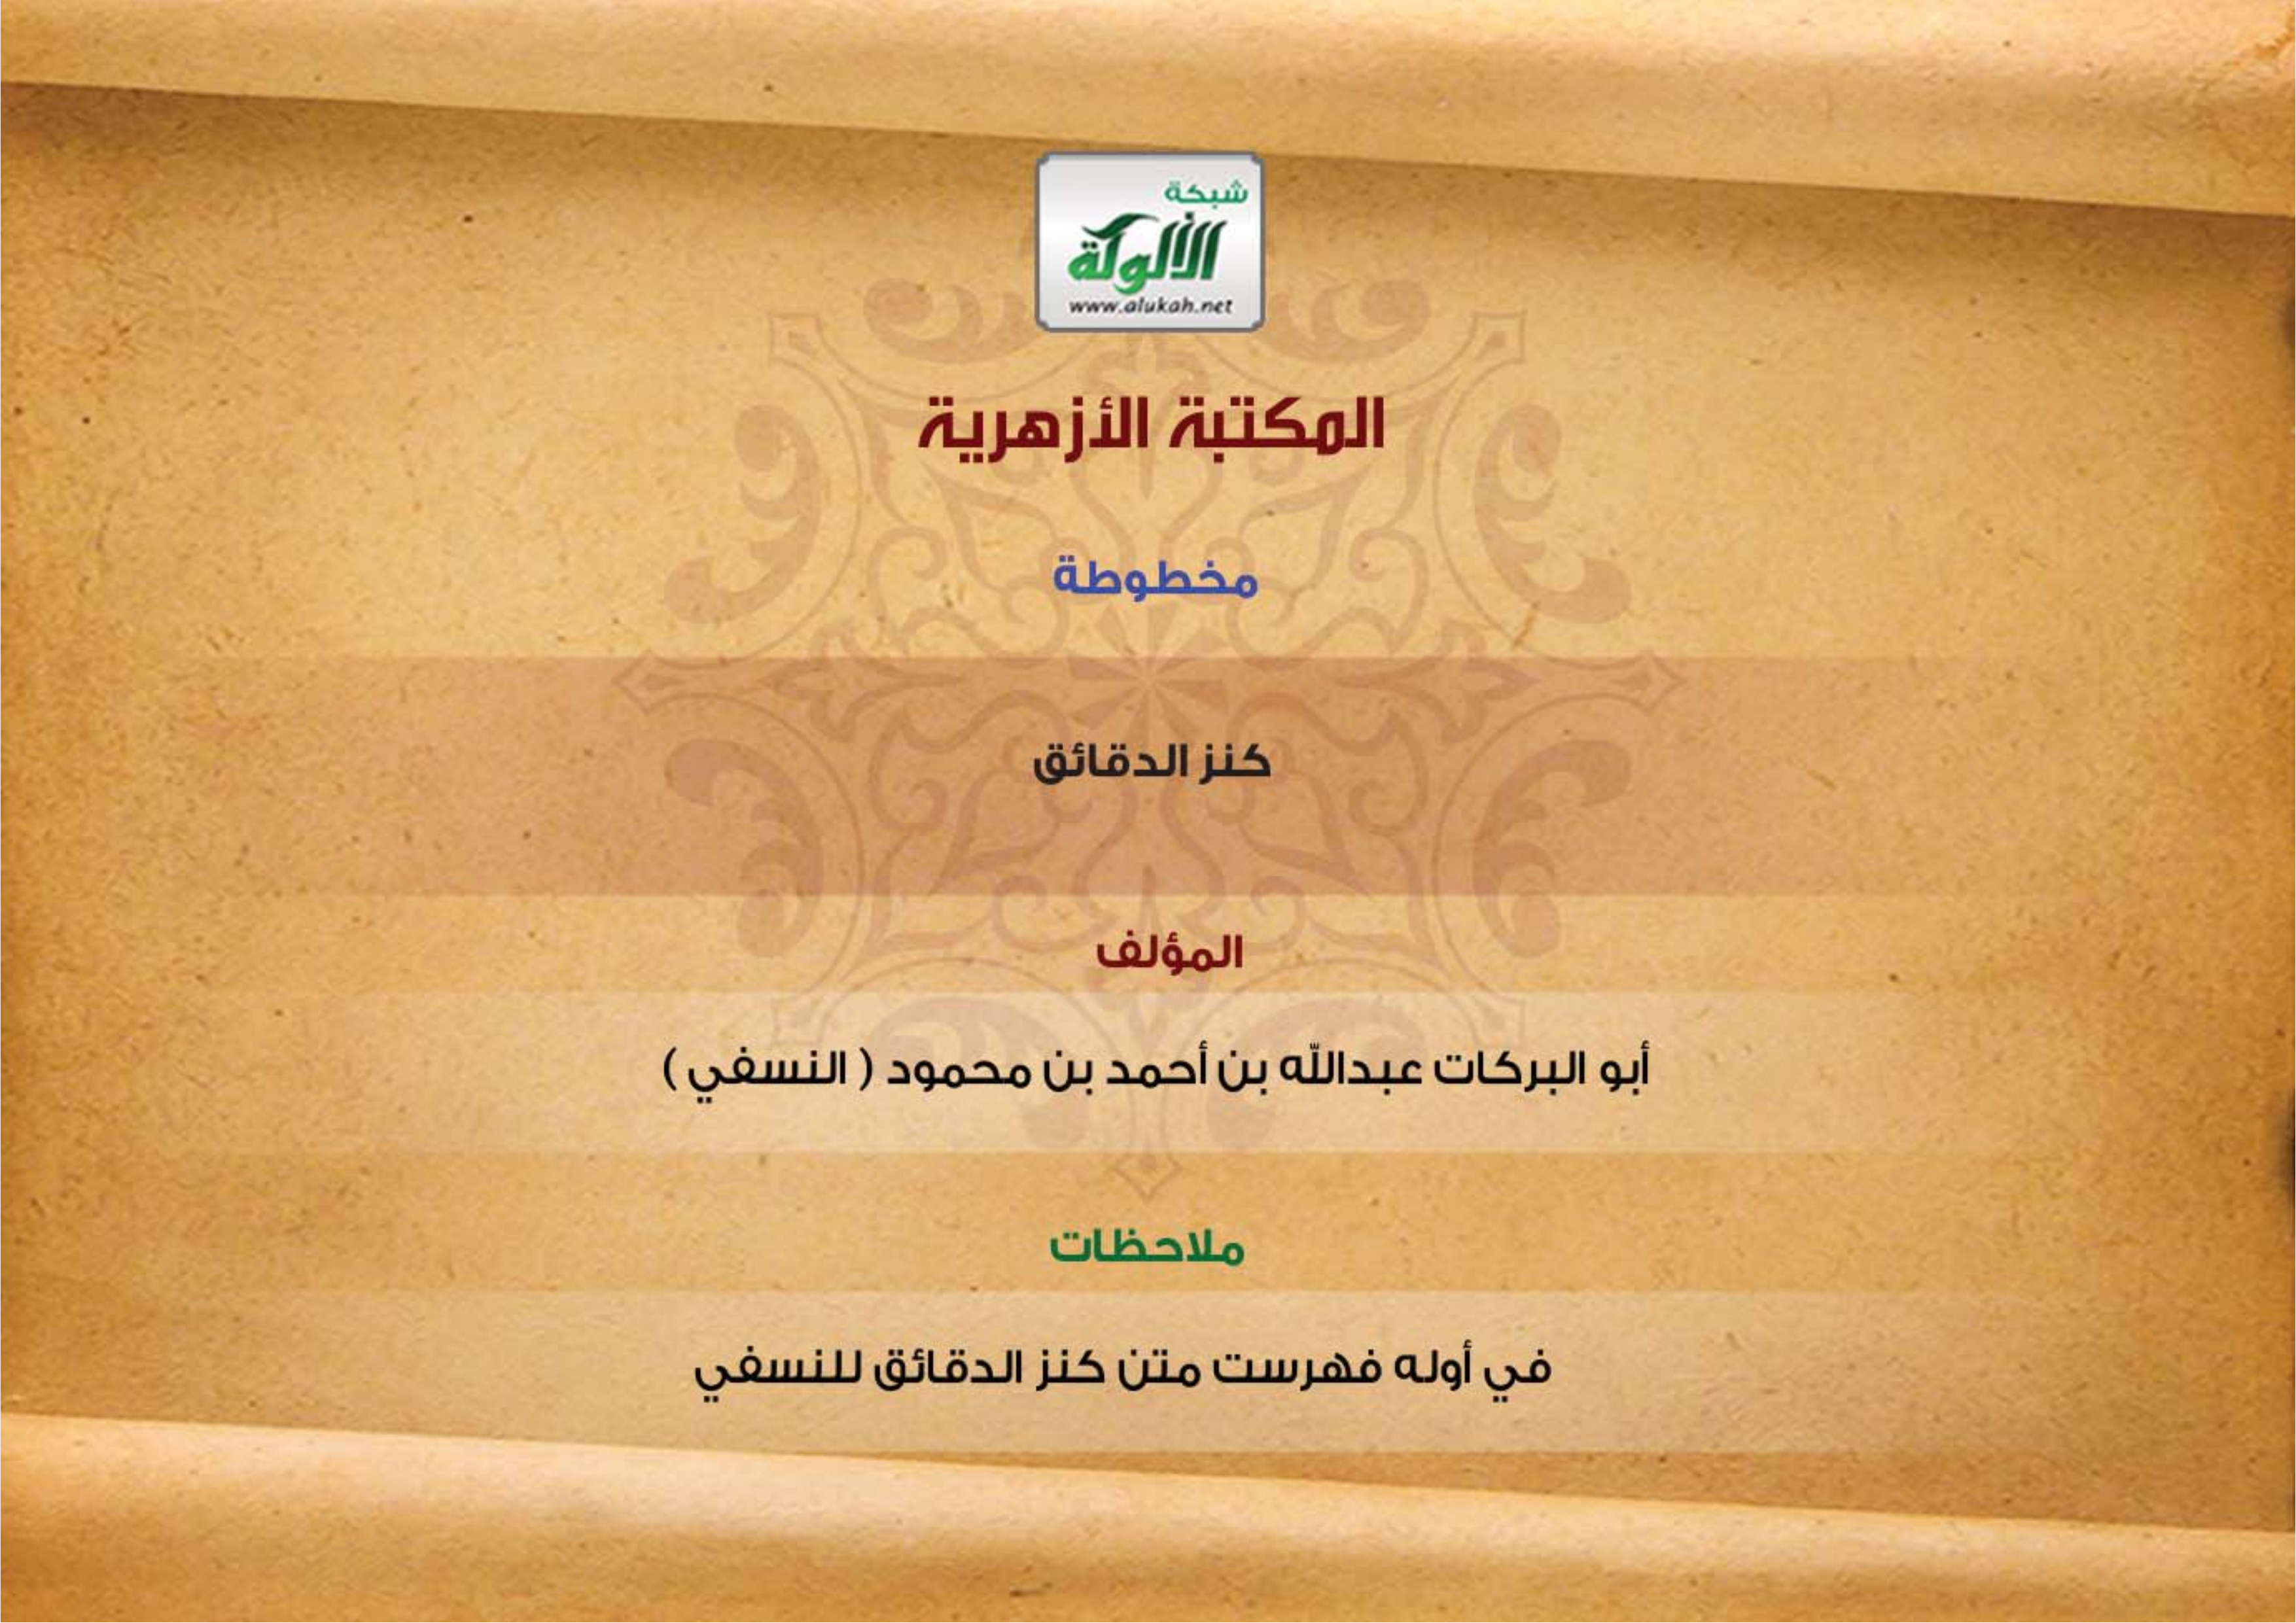 شبكة
الألوكة
www.alukah.net
المكتبة الأزهرية
مخطوطة
كنز الدقائق
المؤلف
أبو البركات عبدالله بن أحمد بن محمود ( النسفي )
ملاحظات
في أوله فهرست متن كنز الدقائق للنسفي